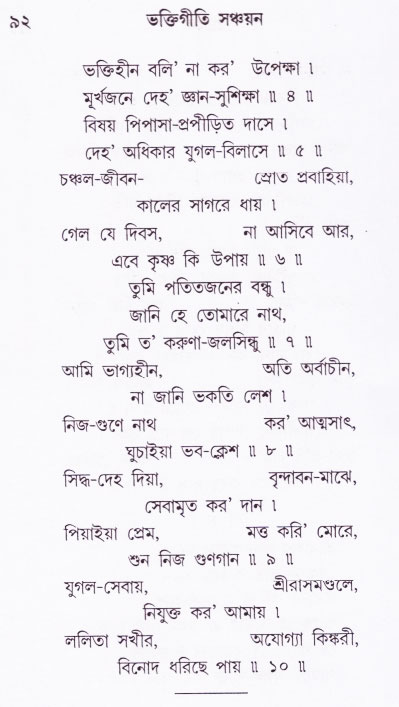 ৯২ ভক্তিগীতি সঞ্চয়ন
ভক্তিহীন বলি' না কর' উপেক্ষা ।
মূর্খজনে দেহ' জ্ঞান-সুশিক্ষা ॥ ৪ ॥
বিষয় পিপাসা-প্রপীড়িত দাসে ।
দেহ' অধিকার যুগল-বিলাসে ॥ ৫ ॥
চঞ্চল-জীবন- স্রোত প্রবাহিয়া,
কালের সাগরে ধায় ।
গেল যে দিবস, না আসিবে আর,
এবে কৃষ্ণ কি উপায় ॥ ৬ ॥
তুমি পতিতজনের বন্ধু ।
জানি হে তোমারে নাথ,
তুমি ত' করুণা-জলসিন্ধু ॥ ৭ ॥
আমি ভাগ্যহীন, অতি অর্বাচীন,
না জানি ভকতি লেশ ।
নিজ-গুণে নাথ কর' আত্মসাৎ,
ঘুচাইয়া ভব-ক্লেশ ॥ ৮ ॥
সিদ্ধ-দেহ দিয়া, বৃন্দাবন-মাঝে,
সেবামৃত কর' দান ।
পিয়াইয়া প্রেম, মত্ত করি' মোরে,
শুন নিজ গুণগান ॥ ৯ ॥
যুগল-সেবায়, শ্রীরাসমণ্ডলে,
নিযুক্ত কর' আমায় ।
ললিতা সখীর, অযোগ্যা কিঙ্করী,
বিনোদ ধরিছে পায় ॥ ১০ ॥